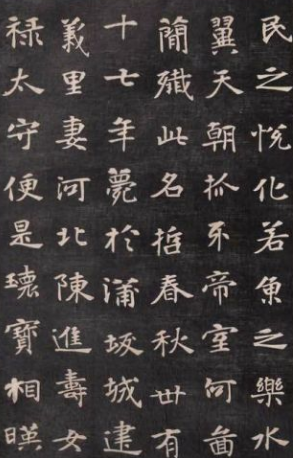 民之悦化若魚之樂水
翼天朝抓牙帝室何啚
簡殲此名哲春秋卅有
十七年薨於蒲坂城建
義里妻河北陳進壽女
禄太守便是瓌寶相暎